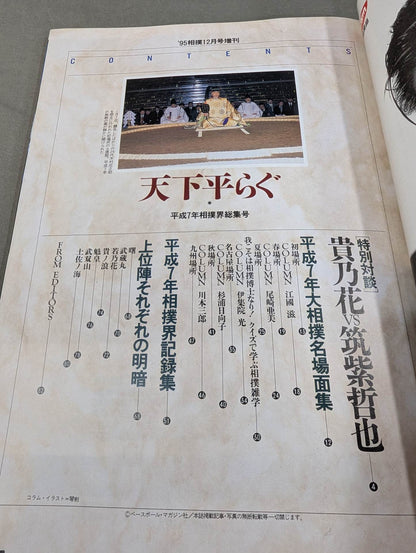 '95相撲12月号増刊
CONTENTS
天下平らぐ
平成7年相撲界総集号
[特別対談]
貴乃花VS筑紫哲也 4
平成7年大相撲名場面集 12
初場所 18
COLUMN 江國 滋
春場所
COLUMN 尾崎亜美
夏場所
我こそは相撲博士なり!クイズで学ぶ相撲雑学 50
COLUMN 伊集院 光
名古屋場所
COLUMN 杉浦日向子
秋場所
COLUMN 川本三郎
九州場所 47
平成7年相撲界記録集
上位陣それぞれの明暗
曙
武蔵丸
若乃花
貴ノ浪
魁皇
武双山
土佐ノ海
FROM EDITORS 82
コラム・イラスト=琴剣
©ベースボール・マガジン社/本誌掲載記事・写真の無断転載等一切禁じます。